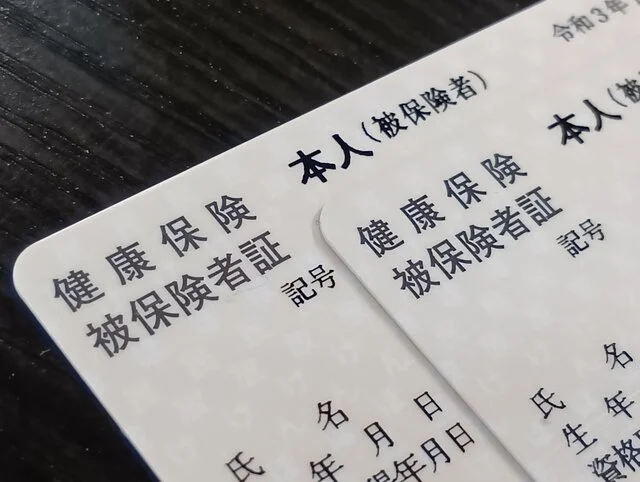 本人（被保険者）
健康保険
被保険者証
記号
氏名
年月日
得年月日
令和3年
本人（被
健康保険
被保険者証
記号
氏名
生年
資格